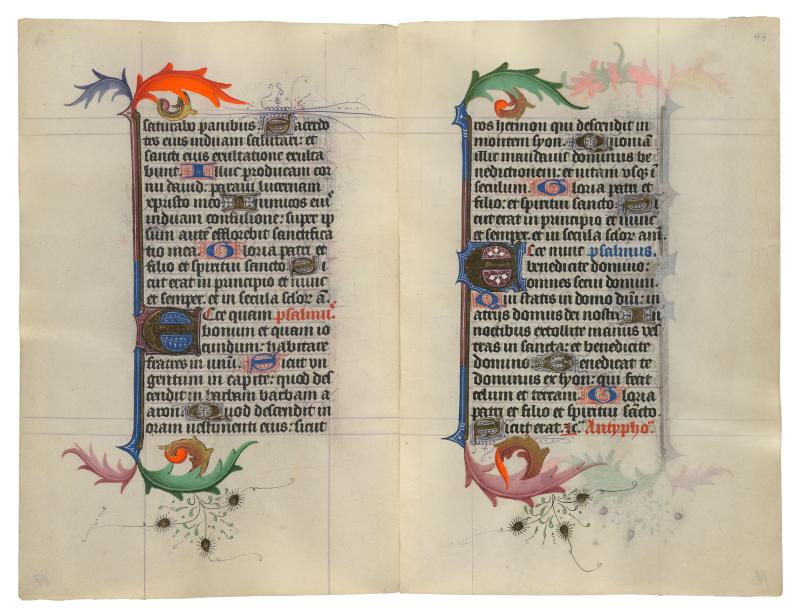 saturabo panibus: Sacerdo
tes eius induam salutari: et
sancti eius exultatione exulta
bunt. Illuc producam cor
nu dauid: paraui lucernam
xpristo meo. Inimicos eiꝰ
induam confusione: super ip
sum autē efflorebit sanctifica
tio mea. Gloria patri et
filio et spiritui sancto. Si
cut erat in principio et nunc
et semper. et in secula sclor̄ a.
Ecce quam psalmꝰ.
bonum et quam io
cundum: habitare
fratres in unū. Sicut vn
gentum in capite: quod des
cendit in barbam barbam a
aron. Quod descendit in
oram uestimenti eius: sicut
44
ros hermon qui descendit in
montem syon. Quoniam
illic mandauit dominus be
nedictionem: et uitam usqꝫ ī
seculum. Gloria patri et
filio: et spiritui sancto. Si
cut erat in principio et nunc
et semper. et in secula sclor̄ am̄.
Ecce nunc psalmus.
benedicite domino:
omnes serui domini.
Qui statis in domo dn̄i: in
atrijs domus dei nostri. In
noctibus extollite manus ves
tras in sancta: et benedicite
domino. Benedicat te
dominus ex syon: qui fecit
celum et terram. Gloria
patri et filio et spiritui sāncto.
Sicut erat. ⁊c̄. Antypho.